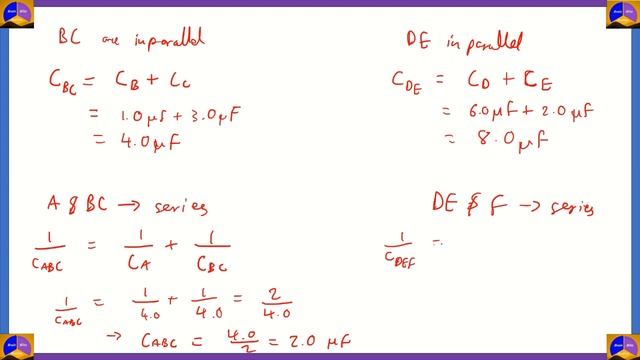 BC are in parallel
C_BC = C_B + C_C
= 1.0 μF + 3.0 μF
= 4.0 μF
DE in parallel
C_DE = C_D + C_E
= 6.0 μF + 2.0 μF
= 8.0 μF
A & BC → series
1/C_ABC = 1/C_A + 1/C_BC
1/C_ABC = 1/4.0 + 1/4.0 = 2/4.0
→ C_ABC = 4.0/2 = 2.0 μF
DE & F → series
1/C_DEF =